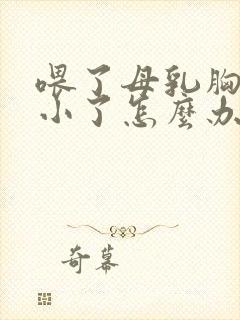 喂了母乳胸
小了怎麼办
奇幕